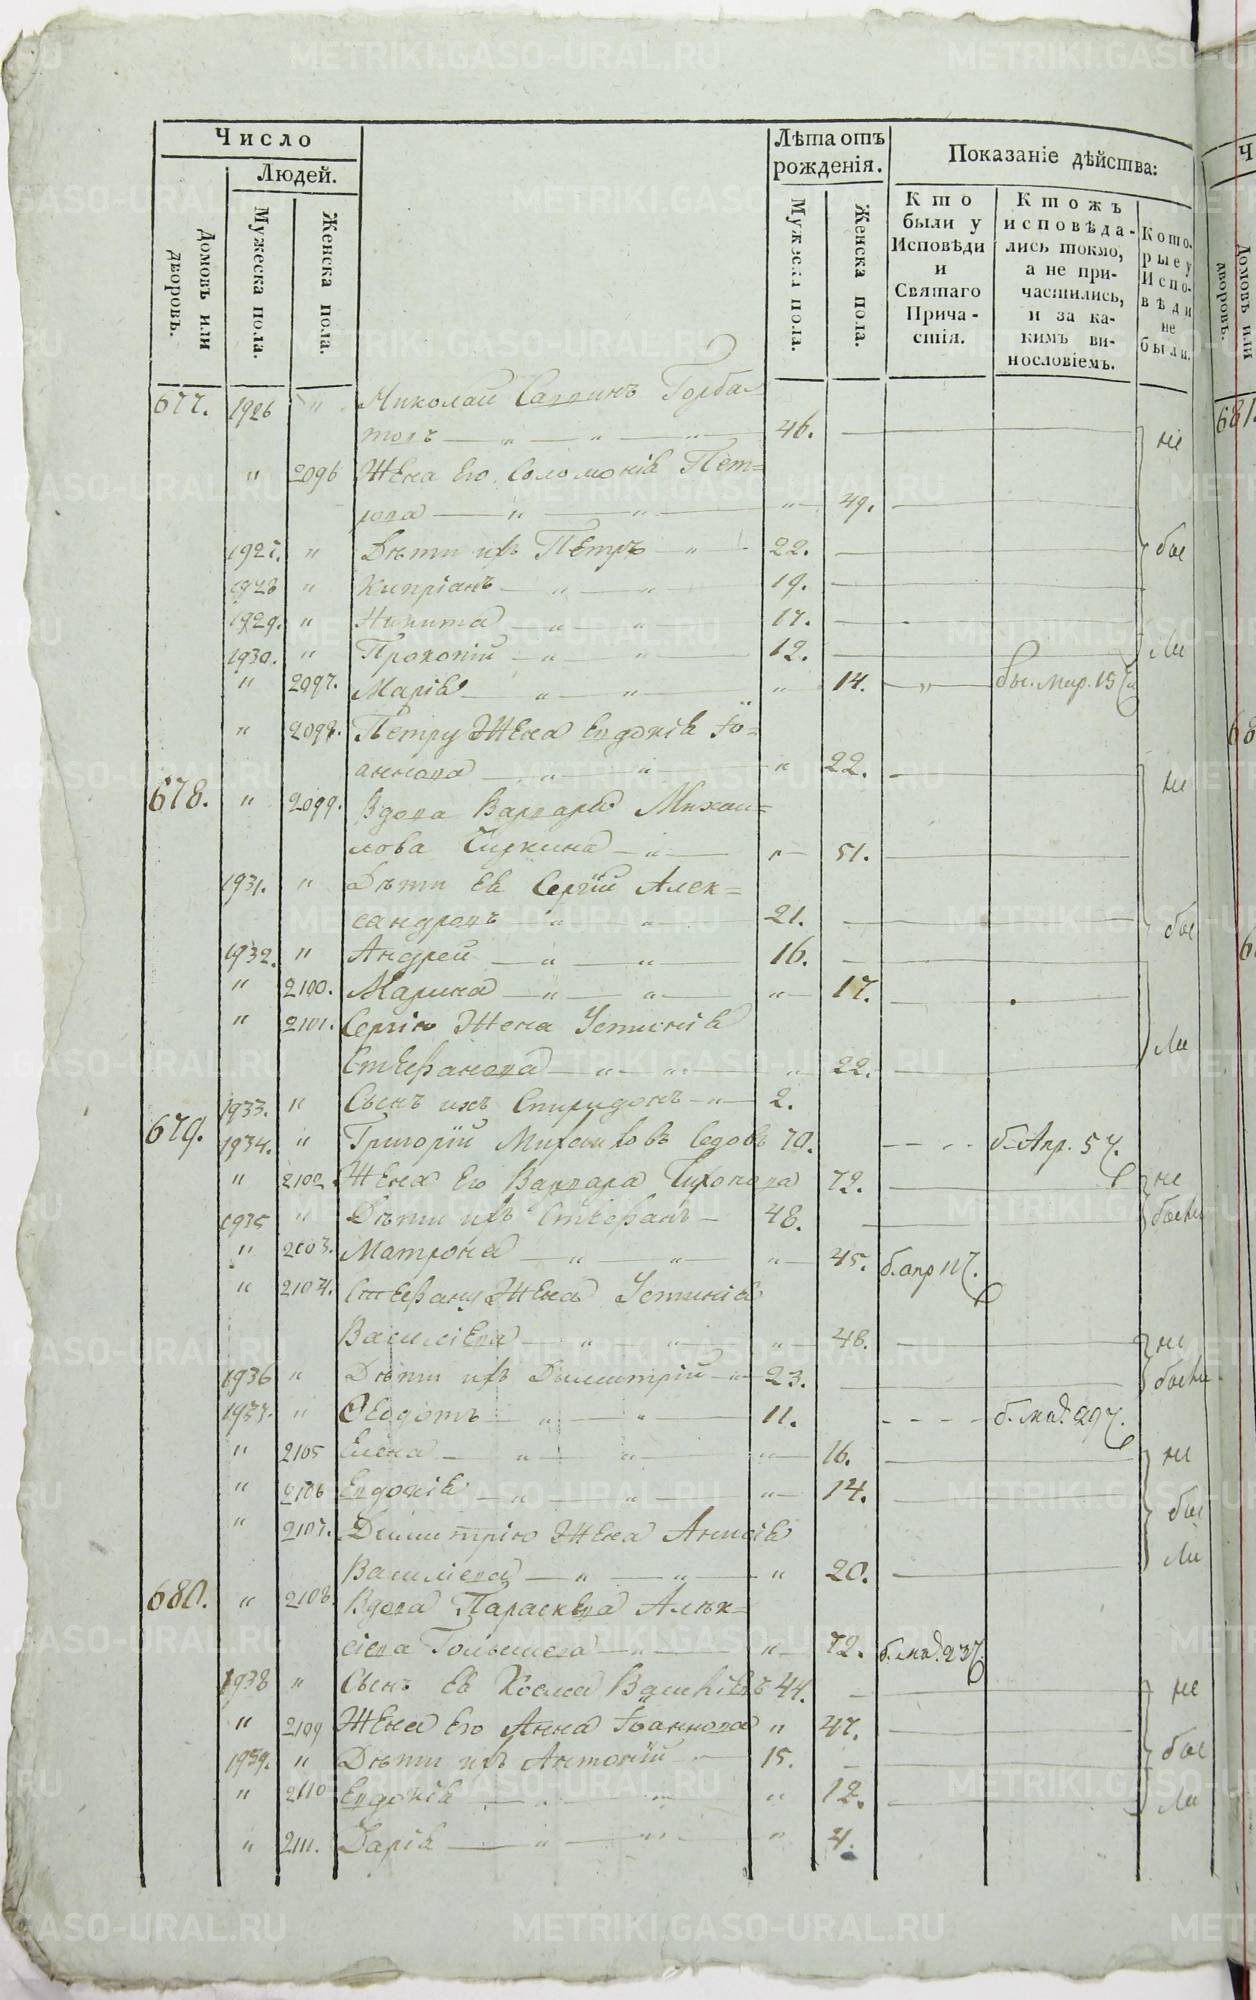 Число
Людей.
Домовъ или дворовъ.
Мужеска пола.
Женска пола.
Лѣта отъ рожденія.
Мужеска пола.
Женска пола.
Показаніе дѣйства:
Кто были у Исповѣди и Святаго Причастія.
Ктожъ исповѣдались токмо, а не причастились, и за какимъ винословіемъ.
Которые у Исповѣди не были.
677. 1926 " Николай Саввинъ Горба
товъ — " — " — " 46. не
" 2096 Жена Его Соломоніа Пет=
рова — " — " — " 49.
1927. " Дѣти ихъ Петръ — " 22. бы
1928 " Кипріанъ — " — " 19.
1929. " Никита — " — " 17.
1930. " Прокопій — " — " 12. ли
" 2097. Маріа — " — " " 14. — " — бы. мар. 15
" 2098. Петру Жена Евдокіа Іо=
аннова — " — " " 22. не
678. " 2099. Вдова Варвара Михаи=
лова Чиркина — " — " 51.
1931. " Дѣти Еа Сергій Алек=
сандровъ " " 21. бы
1932. " Андрей — " — " 16.
" 2100. Марина — " — " " 17.
" 2101. Сергію Жена Устиніа
Стефанова — " — " " 22. ли
1933. " Сынъ ихъ Спиридонъ — " 2.
679. 1934. " Григорій Михаиловъ Седовъ 70. б. Апр. 5
" 2102 Жена Его Варвара Тихонова 72. не
1935 " Дѣти ихъ Стефанъ — 48. были
" 2103. Матрона — " — " " 45. б. апр 11
" 2104. Стефану Жена Устиніа
Василіева — " — " " 48. не
1936 " Дѣти ихъ Димитрій — " 23. были
1937. " Ѳеодотъ — " — " 11. б. ма. 29
" 2105 Елена — " — " " 16. не
" 2106 Евдокіа — " — " " 14. бы
" 2107. Димитрію Жена Анисіа
Василіева — " — " " 20. ли
680. " 2108. Вдова Параскева Алек=
сіева Голышева — " — " 72. б. ма. 23
1938 " Сынъ Еа Косма Василіевъ 44. не
" 2109 Жена Его Анна Іоаннова " 47.
1939. " Дѣти ихъ Антоній — " 15. бы
" 2110 Евдокіа — " — " " 12. ли
" 2111. Даріа — " — " " 4.
681.
METRIKI.GASO-URAL.RU